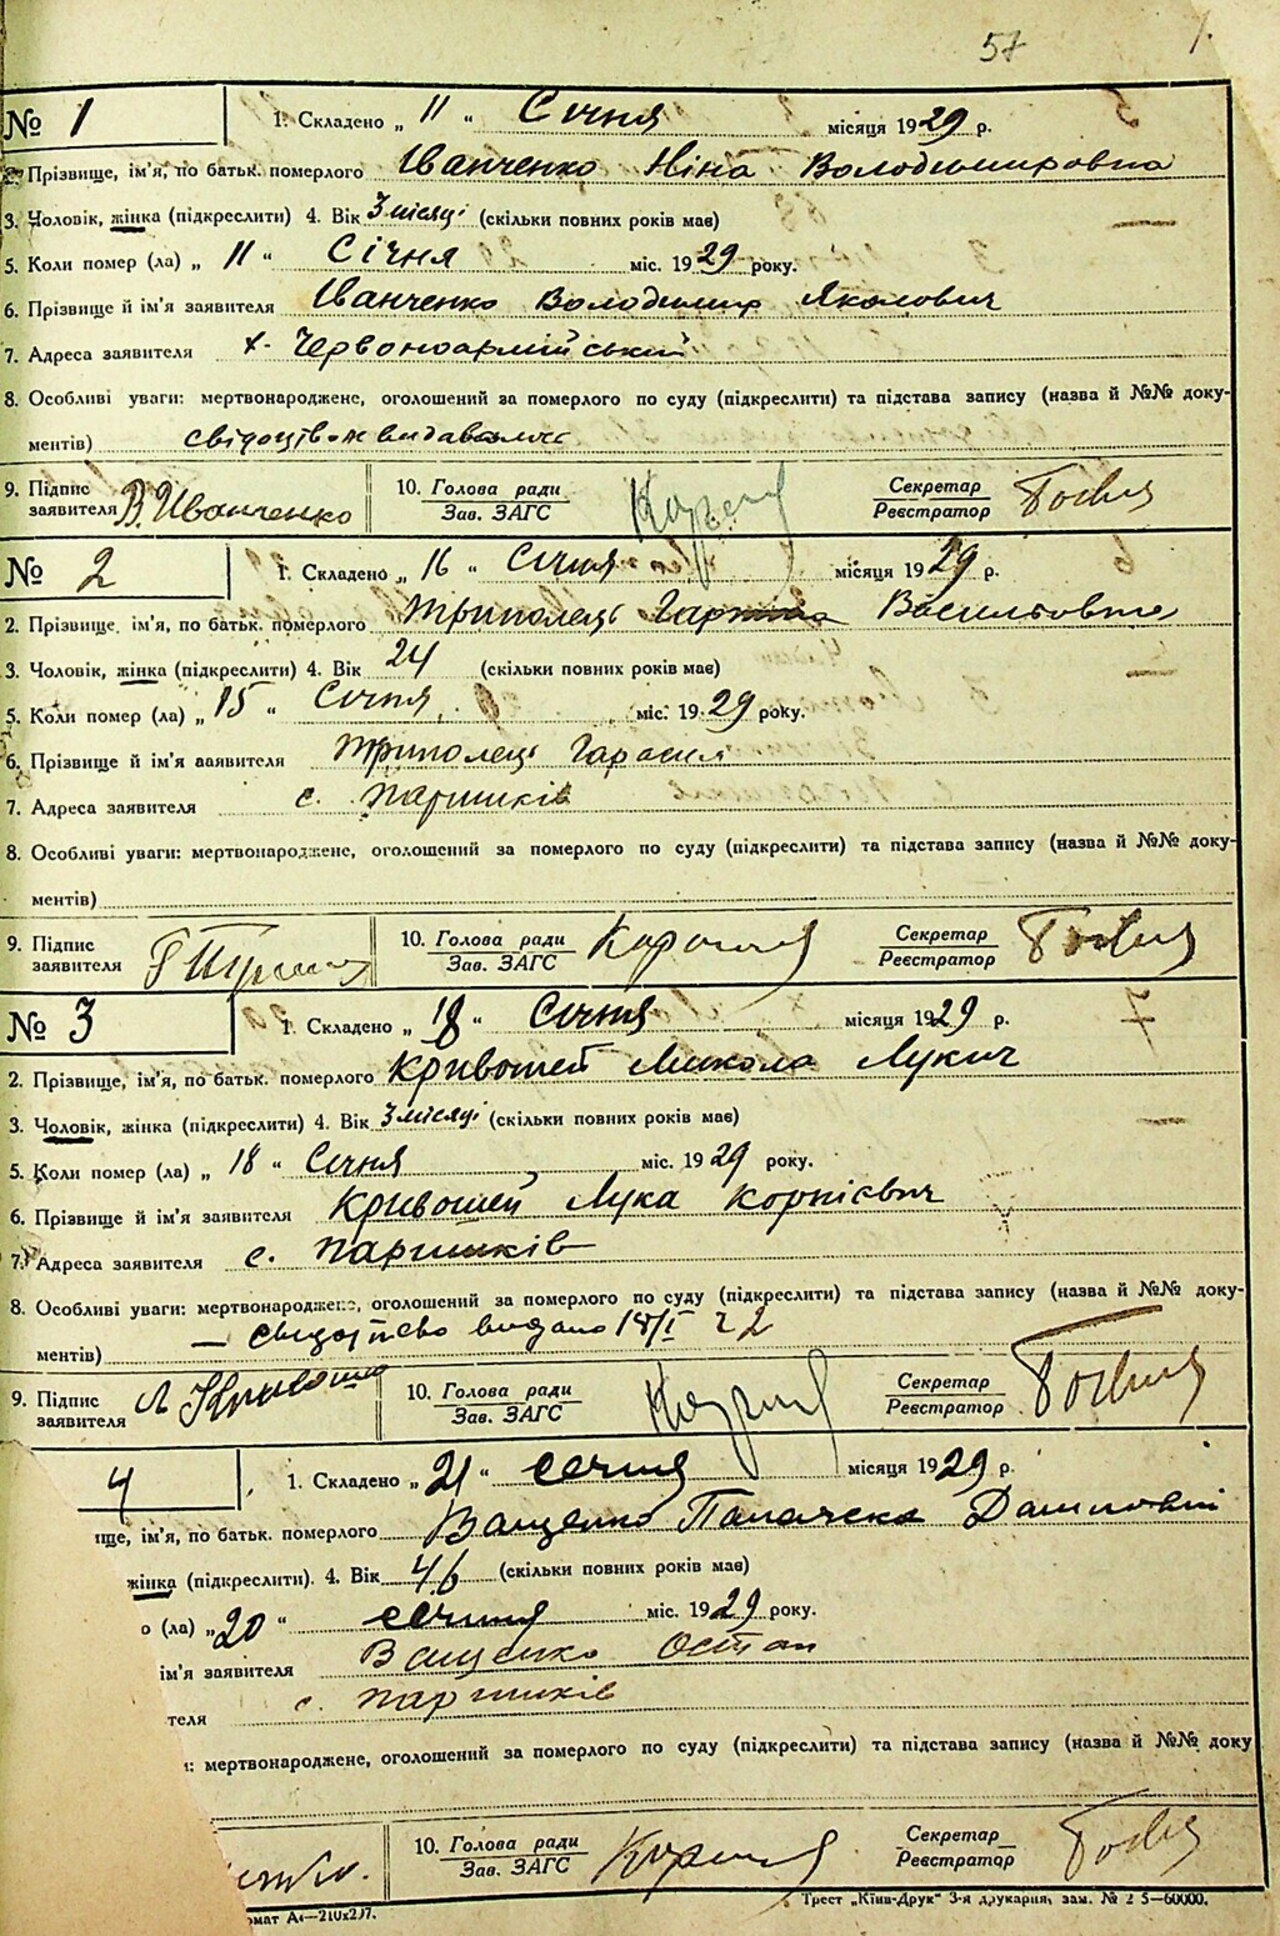 57 1.
№ 1 1. Складено „ 11 “ Січня місяця 1929 р.
2. Прізвище, ім'я, по батьк. померлого Іванченко Ніна Володимировна
3. Чоловік, жінка (підкреслити) 4. Вік 3 місяці (скільки повних років має)
5. Коли помер (ла) „ 11 “ Січня міс. 1929 року.
6. Прізвище й ім'я заявителя Іванченко Володимир Якович
7. Адреса заявителя х. Червоноармійський
8. Особливі уваги: мертвонароджене, оголошений за померлого по суду (підкреслити) та підстава запису (назва й №№ доку-
ментів)
9. Підпис заявителя В. Иванченко 10. Голова ради Зав. ЗАГС Секретар Реєстратор
№ 2 1. Складено „ 16 “ Січня місяця 1929 р.
2. Прізвище, ім'я, по батьк. померлого Триполець Васильовна
3. Чоловік, жінка (підкреслити) 4. Вік 24 (скільки повних років має)
5. Коли помер (ла) „ 15 “ Січня міс. 1929 року.
6. Прізвище й ім'я заявителя Триполець Гарасим
7. Адреса заявителя с. Паришків
8. Особливі уваги: мертвонароджене, оголошений за померлого по суду (підкреслити) та підстава запису (назва й №№ доку-
ментів)
9. Підпис заявителя 10. Голова ради Зав. ЗАГС Секретар Реєстратор
№ 3 1. Складено „ 18 “ Січня місяця 1929 р.
2. Прізвище, ім'я, по батьк. померлого Кривошей Микола Лукич
3. Чоловік, жінка (підкреслити) 4. Вік 3 місяці (скільки повних років має)
5. Коли помер (ла) „ 18 “ Січня міс. 1929 року.
6. Прізвище й ім'я заявителя Кривошей Лука Корнієвич
7. Адреса заявителя с. Паришків
8. Особливі уваги: мертвонароджене, оголошений за померлого по суду (підкреслити) та підстава запису (назва й №№ доку-
ментів) — свидоцтво видано 18/I 2
9. Підпис заявителя Л Кривошей 10. Голова ради Зав. ЗАГС Секретар Реєстратор
4 1. Складено „ 21 “ сечня місяця 1929 р.
ще, ім'я, по батьк. померлого Ващенко
жінка (підкреслити). 4. Вік 46 (скільки повних років має)
о (ла) „ 20 “ сечня міс. 1929 року.
ім'я заявителя Ващенко Остап
теля с. Паришків
: мертвонароджене, оголошений за померлого по суду (підкреслити) та підстава запису (назва й №№ доку
10. Голова ради Зав. ЗАГС Секретар Реєстратор
Трест „Київ-Друк“ 3-я друкарня, зам. № 2 5—60000.
рмат А4—210х297.